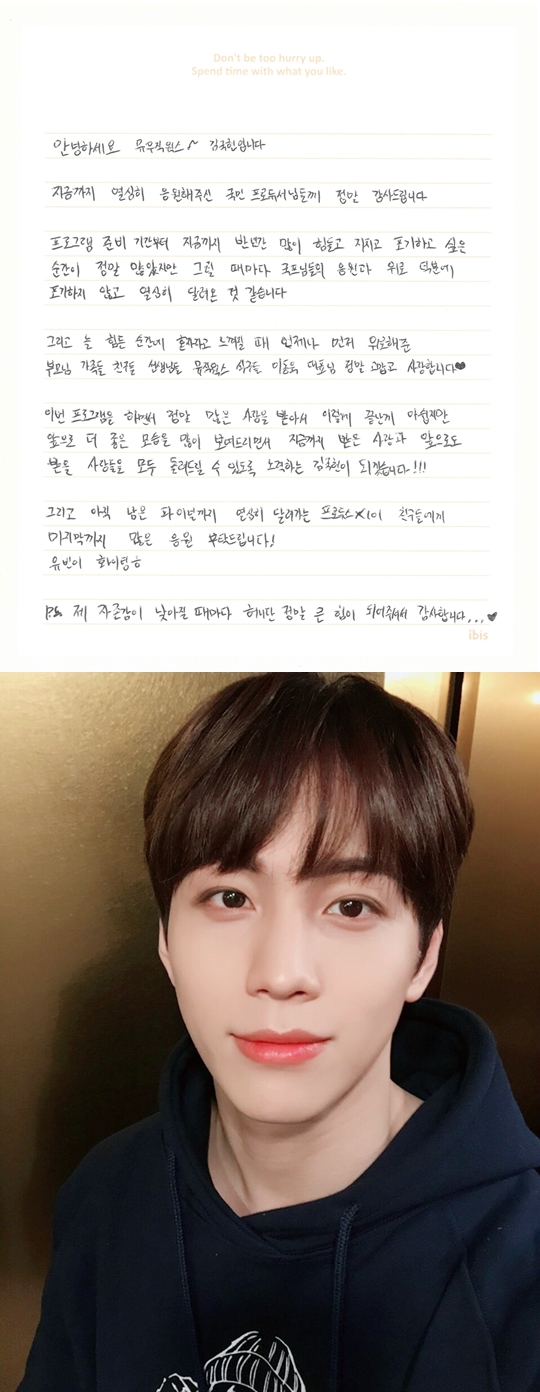 Don't be too hurry up.
Spend time with what you like.
안녕하세요 뮤직웍스~ 김국헌입니다
지금까지 열심히 응원해주신 국민 프로듀서님들께 정말 감사드립니다
프로그램 준비 기간부터 지금까지 반년간 많이 힘들고 지치고 포기하고 싶은
순간이 정말 많았지만 그럴 때마다 국프님들의 응원과 위로 덕분에
포기하지 않고 열심히 달려온 것 같습니다
그리고 늘 힘든 순간에 혼자라고 느껴질 때 언제나 먼저 위로해준
부모님 가족들 친구들 선생님들 뮤직웍스 식구들 이동욱 대표님 정말 고맙고 사랑합니다♥
이번 프로그램을 하면서 정말 많은 사랑을 받아서 이렇게 끝난게 아쉽지만
앞으로 더 좋은 모습을 많이 보여드리면서 지금까지 받은 사랑과 앞으로도
받을 사랑들을 모두 돌려드릴 수 있도록 노력하는 김국헌이 되겠습니다!!!
그리고 아직 남은 파이널까지 열심히 달려가는 프로듀스X101 친구들에게
마지막까지 많은 응원 부탁드립니다!
유빈이 화이팅ㅎ
P.S. 제 자존감이 낮아질 때마다 허니단 정말 큰 힘이 되어주셔서 감사합니다...♥
ibis